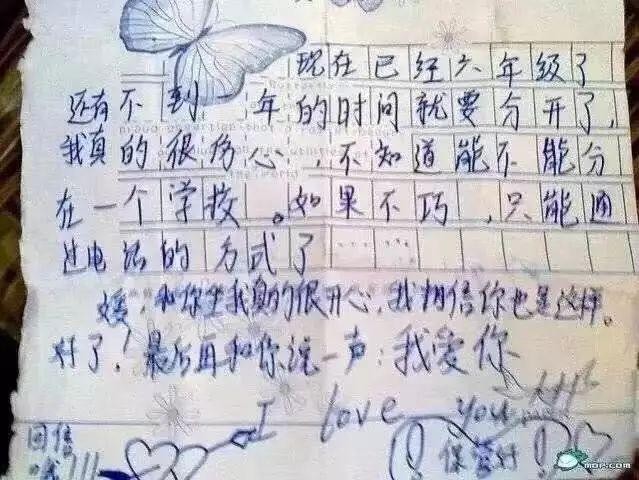 现在已经六年级了
还有不到 年的时间就要分开了，
我真的很伤心，不知道能不能分
在一个学校。如果不巧，只能通
过电话的方式了……
媛，和你坐我真的很开心，我相信你也是这样。
好了！最后再和你说一声：我爱你
I love you
回信
哦!!!
保管好
MOP.COM